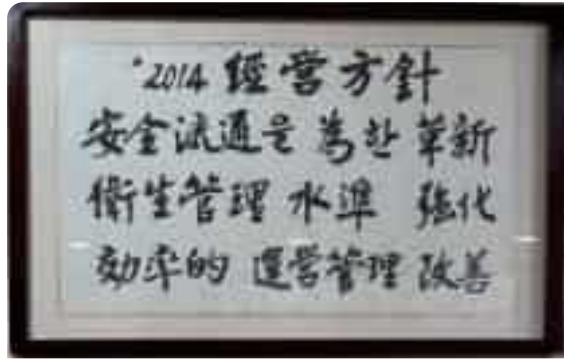 '2014 經營方針
安全流通을 爲한 革新
衛生管理 水準 強化
効率的 運營管理 改善